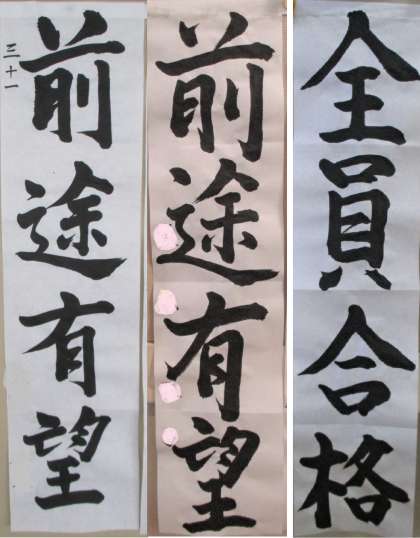 三十一
前途有望
前途有望
全員合格